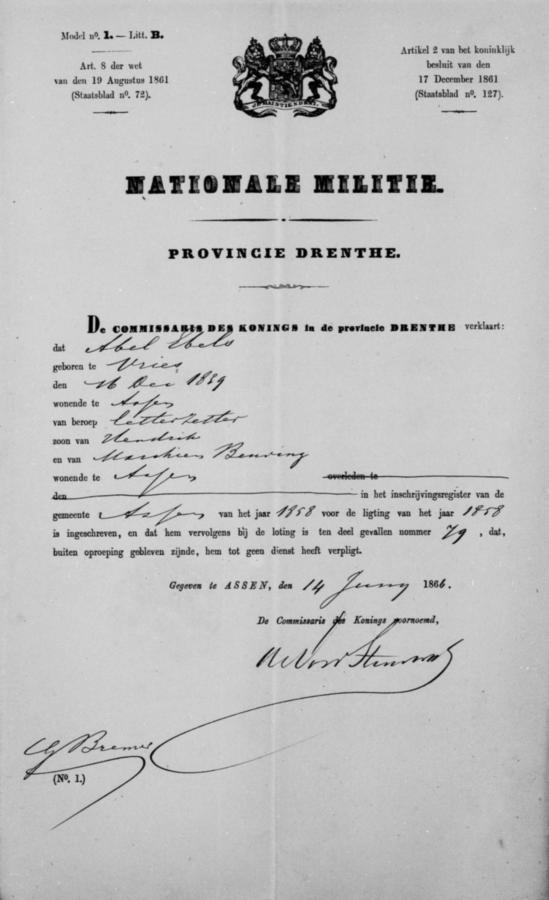 Model nº. 1. — Litt. B.
Art. 8 der wet
van den 19 Augustus 1861
(Staatsblad nº. 72).
JE MAINTIENDRAI.
Artikel 2 van het koninklijk
besluit van den
17 December 1861
(Staatsblad nº. 127).
NATIONALE MILITIE.
PROVINCIE DRENTHE.
De COMMISSARIS DES KONINGS in de provincie DRENTHE verklaart:
dat Abel Ebels
geboren te Vries
den 16 Dec 1839
wonende te Assen
van beroep letterzetter
zoon van Hendrik
en van Marchien Beuving
wonende te Assen overleden te
den in het inschrijvingsregister van de
gemeente Assen van het jaar 1858 voor de ligting van het jaar 1858
is ingeschreven, en dat hem vervolgens bij de loting is ten deel gevallen nommer 79, dat,
buiten oproeping gebleven zijnde, hem tot geen dienst heeft verpligt.
Gegeven te ASSEN, den 14 Juny 1866.
De Commissaris des Konings voornoemd,
G Bremer
(No. 1.)